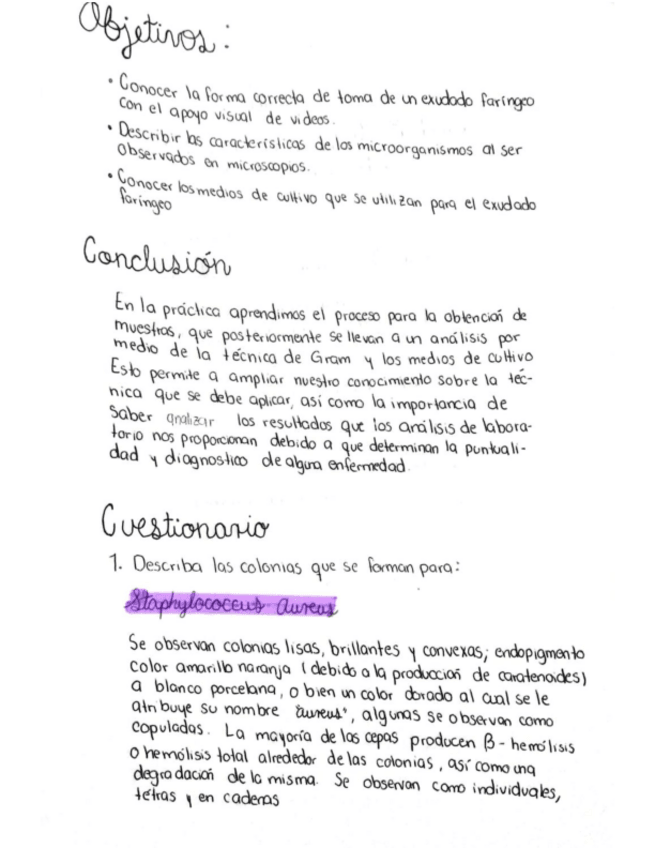 Objetivos:
• Conocer la forma correcta de toma de un exudado faríngeo
con el apoyo visual de videos.
• Describir las características de los microorganismos al ser
observados en microscopios.
• Conocer los medios de cultivo que se utilizan para el exudado
faríngeo
Conclusión
En la práctica aprendimos el proceso para la obtención de
muestras, que posteriormente se llevan a un análisis por
medio de la técnica de Gram y los medios de cultivo
Esto permite a ampliar nuestro conocimiento sobre la téc-
nica que se debe aplicar, así como la importancia de
saber analizar los resultados que los análisis de labora-
torio nos proporcionan debido a que determinan la puntuali-
dad y diagnostico de alguna enfermedad.
Cuestionario
1. Describa las colonias que se forman para:
Staphylococcus aureus
Se observan colonias lisas, brillantes y convexas; endopigmento
color amarillo naranja (debido a la producción de caratenoides)
a blanco porcelana, o bien un color dorado al cual se le
atribuye su nombre "aureus", algunas se observan como
copuladas. La mayoría de las cepas producen β-hemólisis
o hemólisis total alrededor de las colonias, así como una
degradación de la misma. Se observan como individuales,
tétras y en cadenas